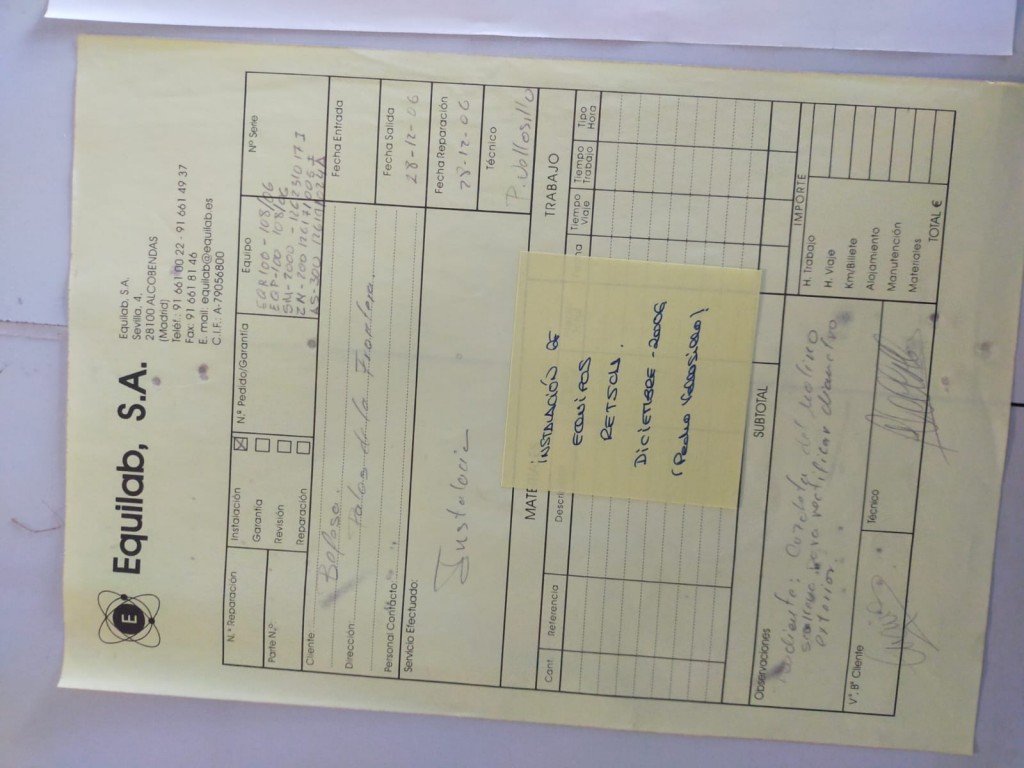 E
Equilab, S.A.
Equilab, S.A.
Sevilla, 4.
28100 ALCOBENDAS
(Madrid)
Teléf.: 91 661 00 22 - 91 661 49 37
Fax: 91 661 81 46
E. mail: equilab@equilab.es
C.I.F. A-79056800
N.º Reparación
Parte N.º
Instalación
Garantía
Revisión
Reparación
N.º Pedido/Garantía
Equipo
Nº Serie
EQR100 - 108/06
EQP-100 108/06
SM-2000
ZM-200
AS-300
Cliente
Dirección
Palos de la Frontera.
Personal Contacto:
Fecha Entrada
Fecha Salida
28-12-06
Fecha Reparación
28-12-06
Técnico
Servicio Efectuado:
MATE
TRABAJO
Cant.
Referencia
Descri
Tiempo Viaje
Tiempo Trabajo
Tipo Hora
INSTALACIÓN DE
EQUIPOS
RETSCH.
DICIEMBRE-2006
(Pedro
SUBTOTAL
IMPORTE
H. Trabajo
H. Viaje
Km/Billete
Alojamiento
Manutención
Materiales
TOTAL €
Observaciones
del molino
para rectificar diametro
exterior.
V.º B.º Cliente
Técnico